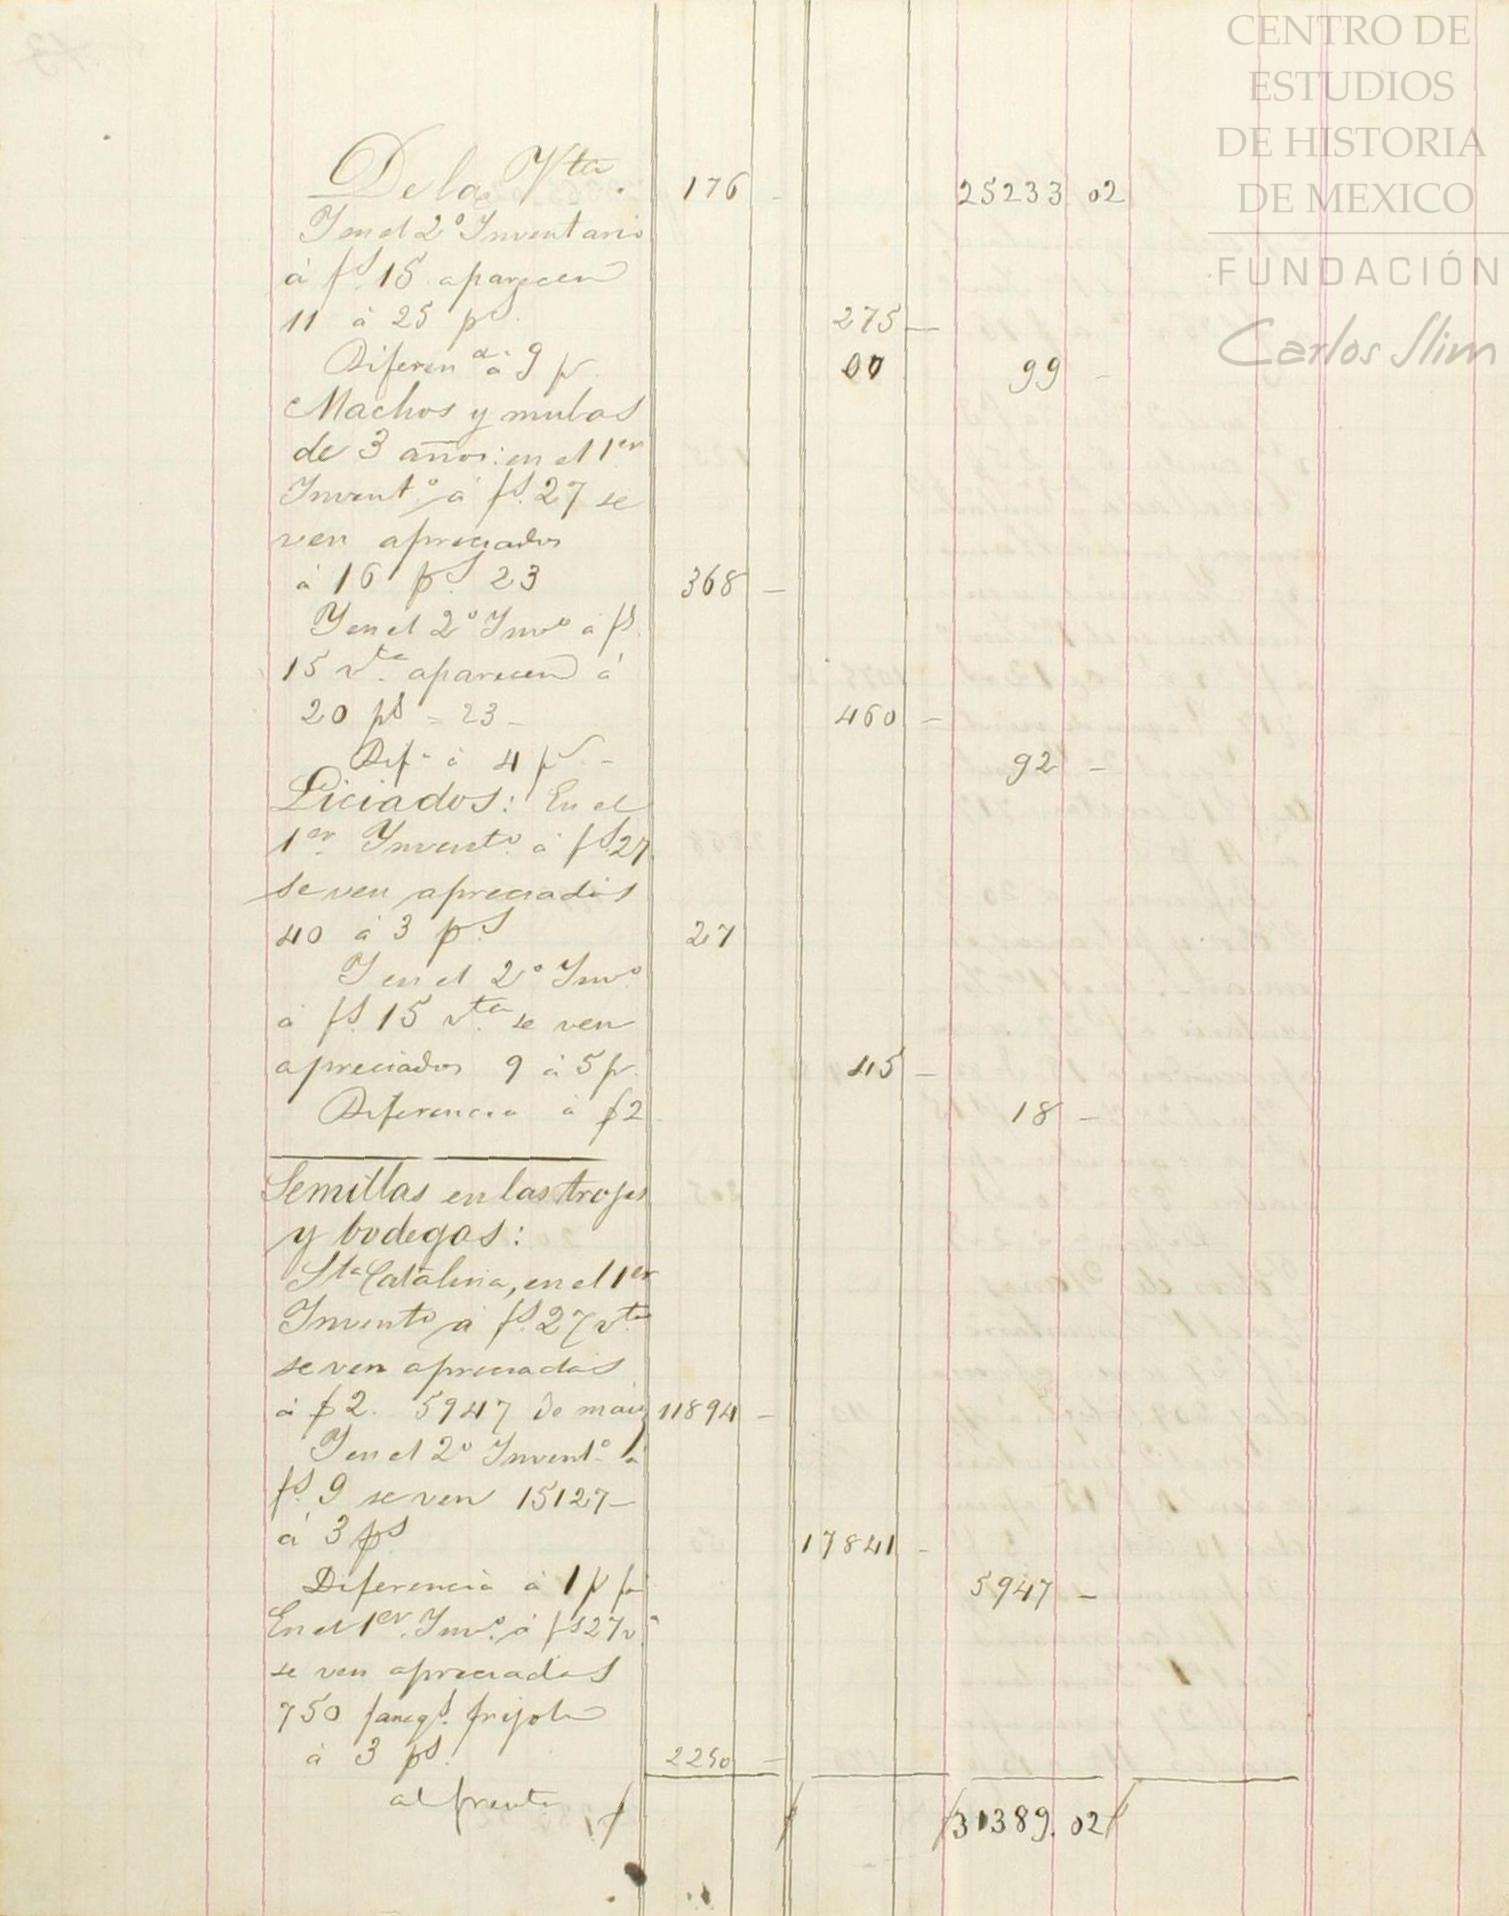 CENTRO DE
ESTUDIOS
DE HISTORIA
DE MEXICO
FUNDACIÓN
Carlos Slim
De la Vta. 176 - 25233 02
Y en el 2º Inventario
á fs. 15 aparecen
11 á 25 ps. 275 -
Diferenª á 9 p. 00 99 -
Machos y mulas
de 3 años: en el 1er
Inventº á fs. 27 se
ven apreciados
á 16 ps. 23 368 -
Y en el 2º Invº á fs.
15 vta. aparecen á
20 ps = 23 - 460 -
Difª á 4 p. - 92 -
Liciados: En el
1er. Inventº á fs. 27
se ven apreciados
40 á 3 ps. 27
Y en el 2º Invº
á fs. 15 vta. se ven
apreciados 9 á 5 p. 45 -
Diferencia á $2 18 -
Semillas en las trojes
y bodegas:
Sta Catalina, en el 1er
Invento á fs. 27 vta
se ven apreciadas
á $2. 5947 de maiz 11894 -
Y en el 2º Inventº á
fs. 9 se ven 15127 -
á 3 ps 17841 -
Diferencia á 1 p 5947 -
En el 1er. Invº. á fs 27 v
se ven apreciadas
750 fanegs. frijol
á 3 ps. 2250 -
al frente 31389. 02